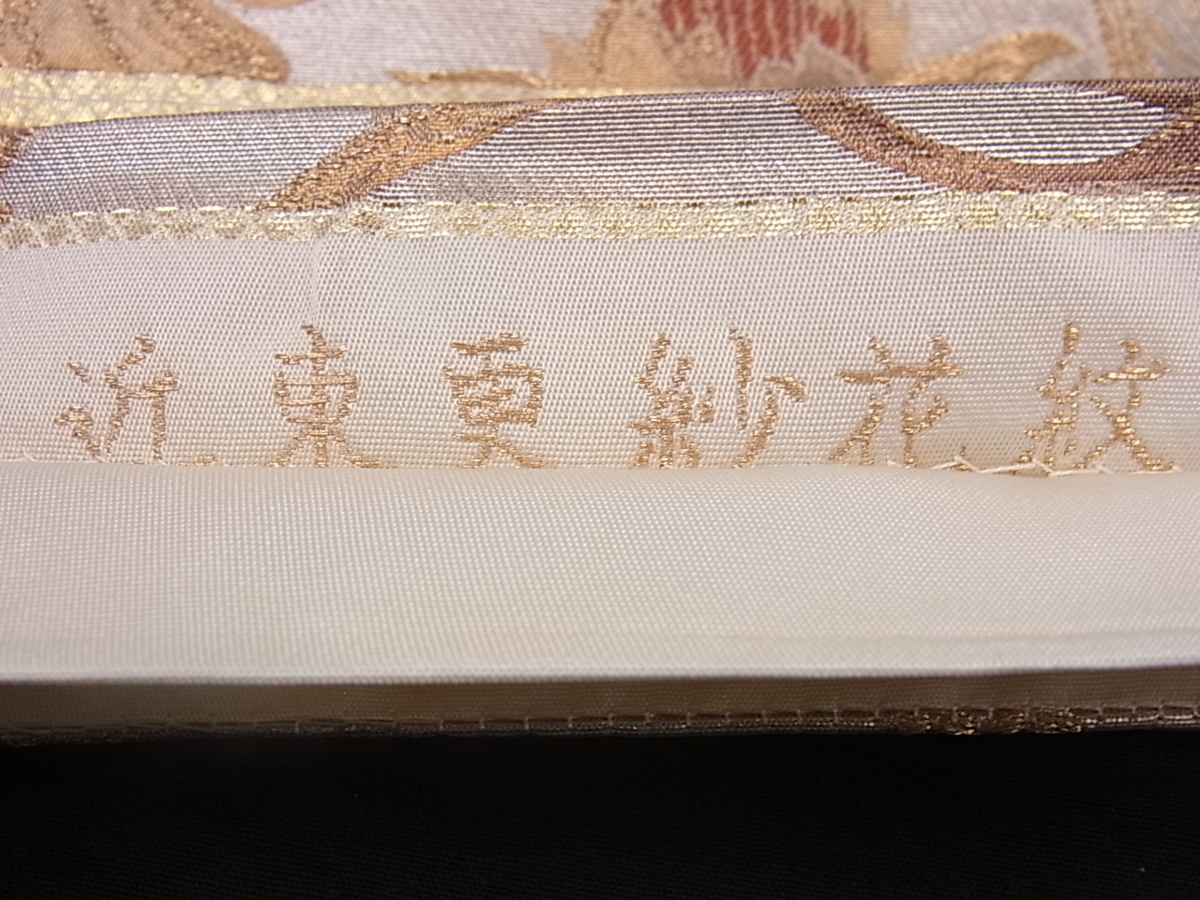 近東更紗花紋